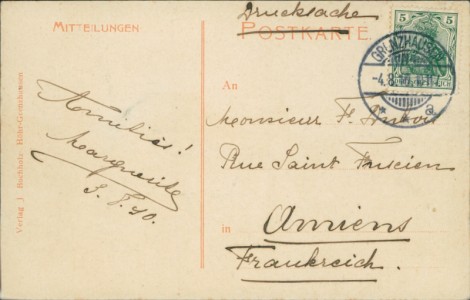 Drucksache
MITTEILUNGEN
POSTKARTE
5 5
GRENZHAUSEN
-4.8.10.
* * a
An
Monsieur
Amitiés!
Rue Saint Fuscien
Marguerite
3. 8. 10.
in
Amiens
Frankreich.
Verlag J. Buchholz, Höhr-Grenzhausen